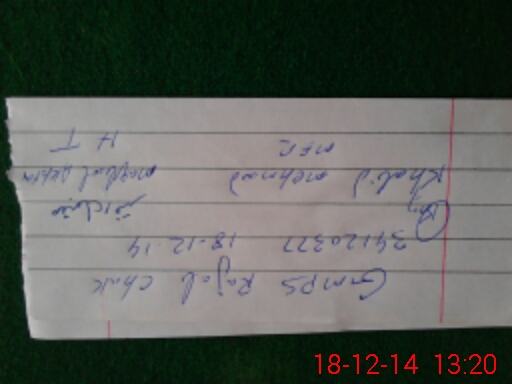 GMPS Rajab chak
34120377 18-12-14
Khalid mehmood
MEA H T
18-12-14 13:20